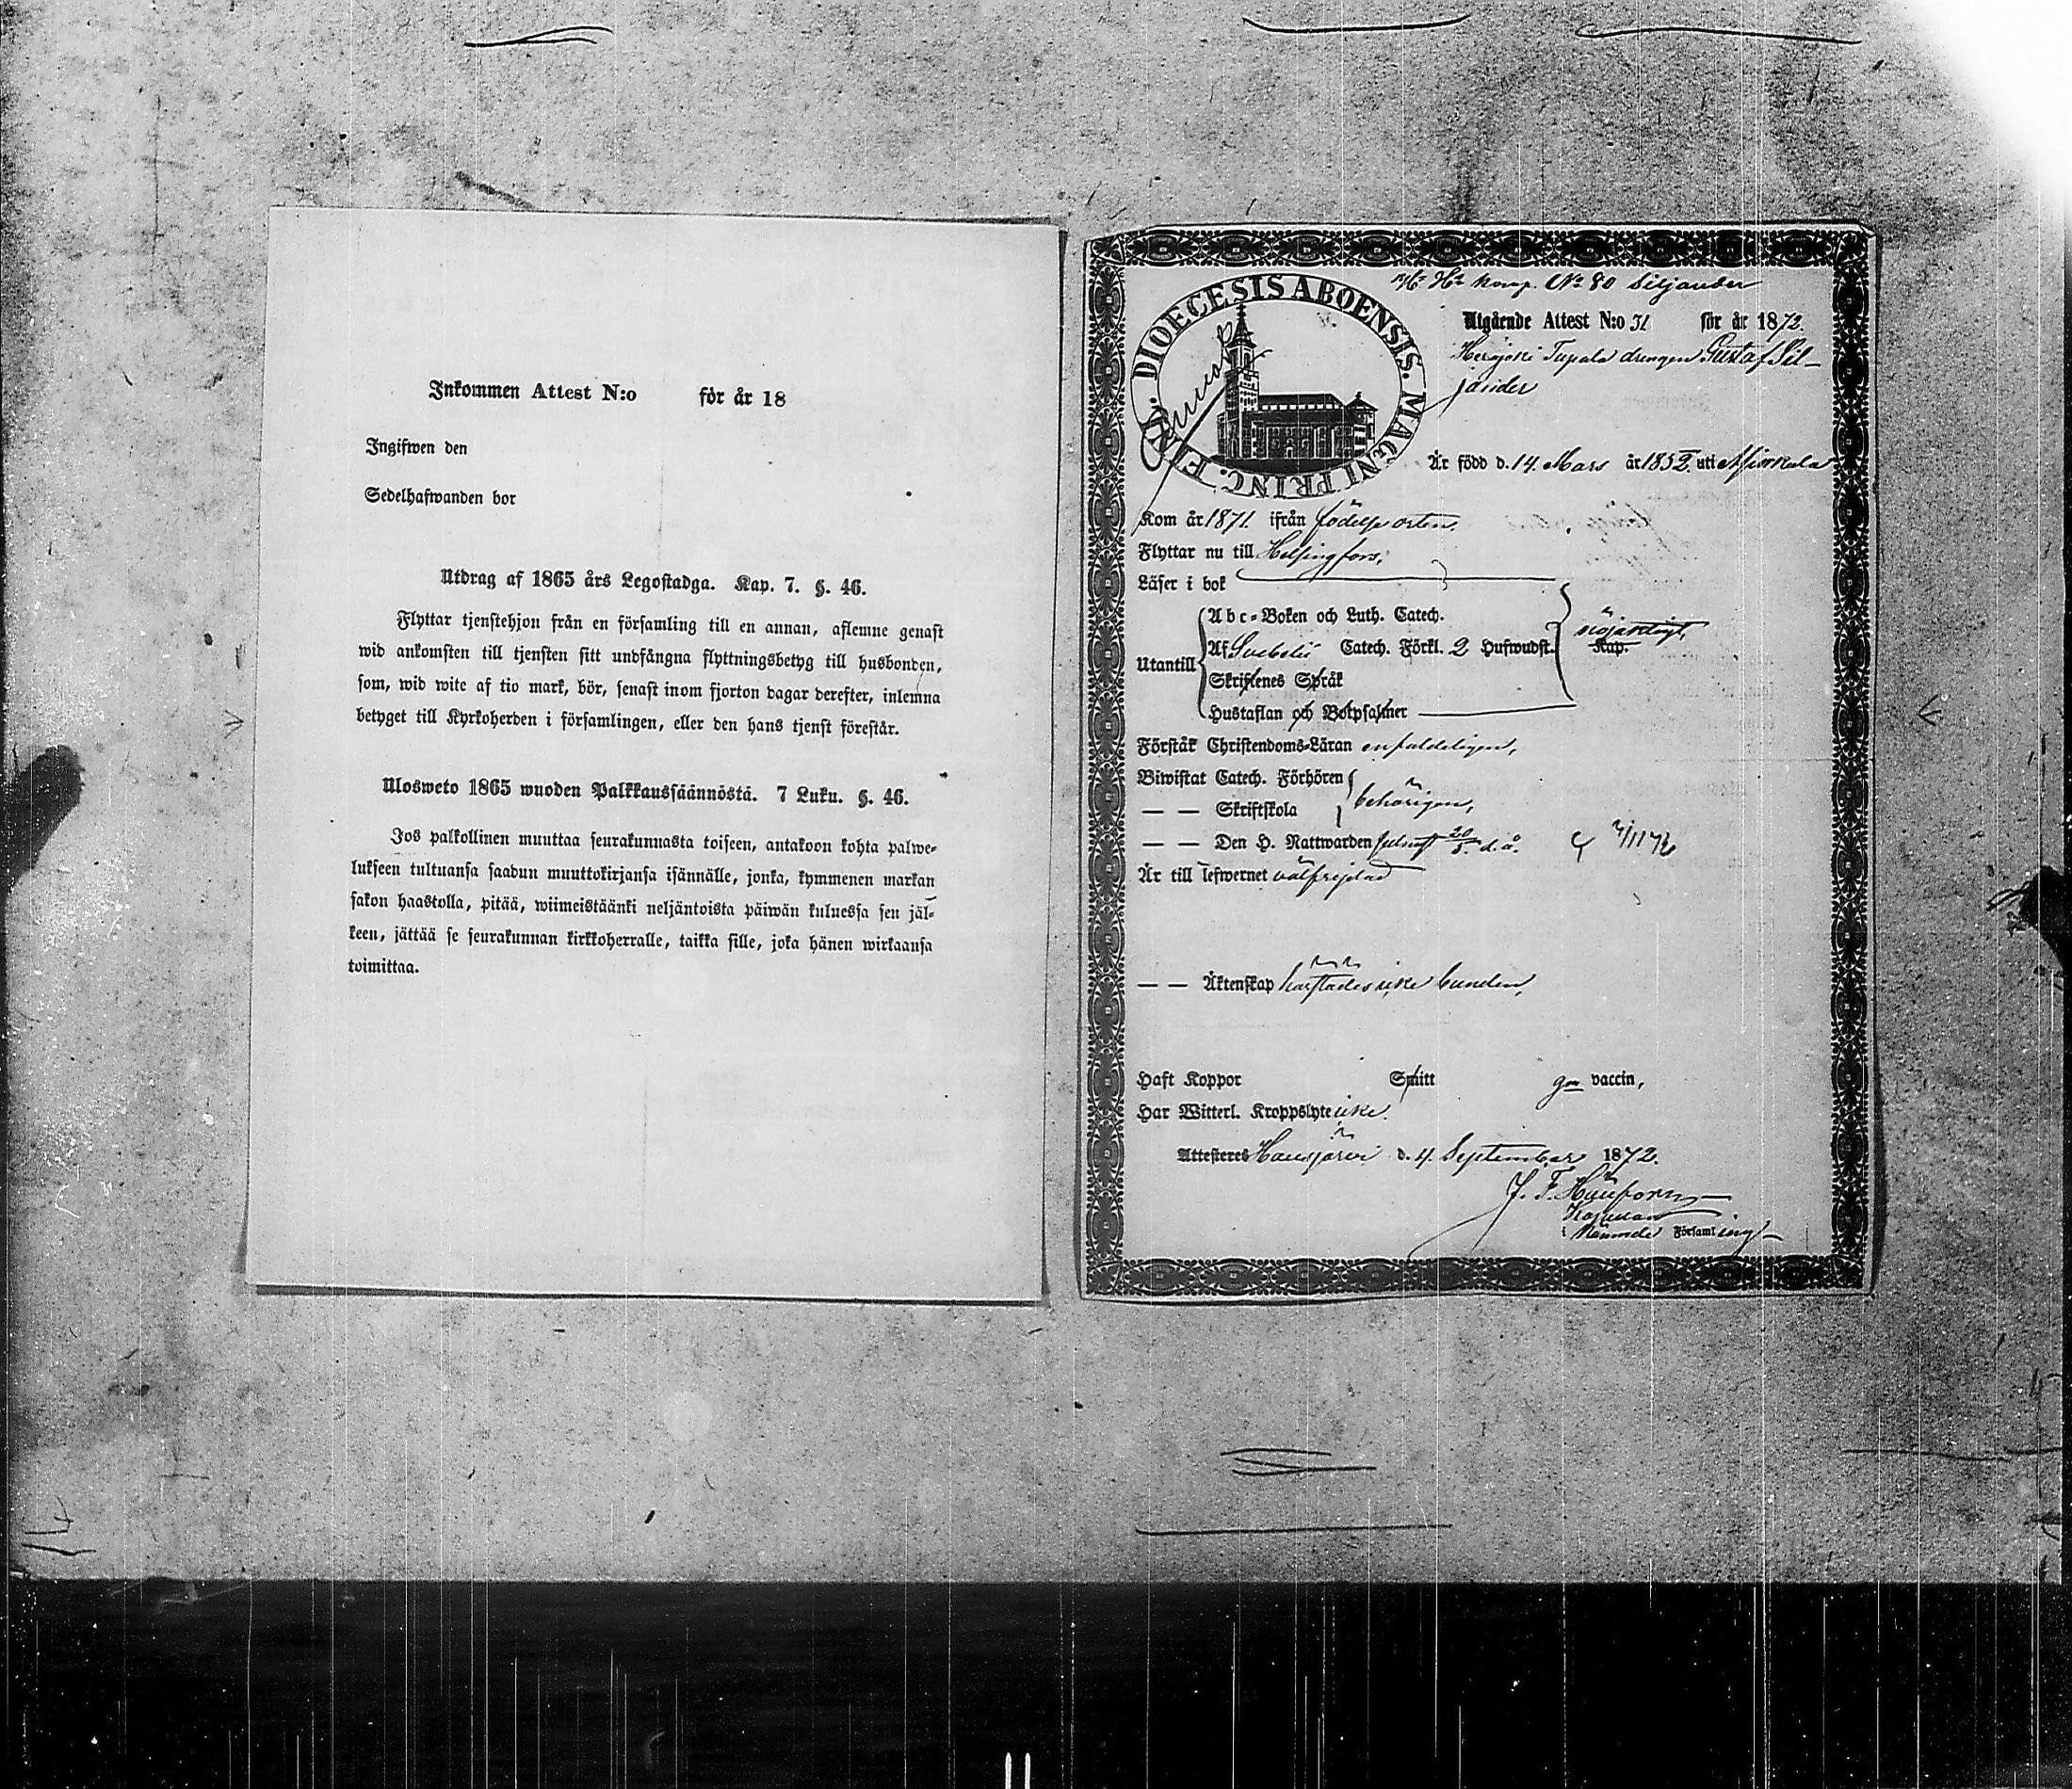 Inkommen Attest N:o för år 18
Ingifwen den
Sedelhafwanden bor
Utdrag af 1865 års Legostadga. Kap. 7. §. 46.
Flyttar tjenstehjon från en församling till en annan, aflemne genast
wid ankomsten till tjensten sitt undfångna flyttningsbetyg till husbonden,
som, wid wite af tio mark, bör, senast inom fjorton dagar derefter, inlemna
betyget till Kyrkoherden i församlingen, eller den hans tjenst förestår.
Ulosweto 1865 wuoden Palkkaussäännöstä. 7 Luku. §. 46.
Jos palkollinen muuttaa seurakunnasta toiseen, antakoon kohta palwe-
lukseen tultuansa saadun muuttokirjansa isännälle, jonka, kymmenen markan
sakon haastolla, pitää, wiimeistäänki neljäntoista päiwän kuluessa sen jäl-
keen, jättää se seurakunnan kirkkoherralle, taikka sille, joka hänen wirkaansa
toimittaa.
komp. No 80 Siljander
DIOECESIS ABOENSIS. MAGNI PRINC. FINL.
Utgående Attest N:o 31 för år 1872.
Herajoki Tupala drengen Gustaf Sil-
jander
Är född d. 14. Mars år 1852. uti
Kom år 1871. ifrån födelse orten.
Flyttar nu till Helsingfors.
Läser i bok
Abc-Boken och Luth. Catech.
nöjaktigt,
Utantill Af Svebelii Catech. Förkl. 2 Hufwudst. Kap.
Skriftenes Språk
Hustaflan och Botpsalmer
Förstår Christendoms-Läran enfaldeligen,
Biwistat Catech. Förhören
— — Skriftskola behörigen,
— — Den H. Nattwarden senast 20/5. d.å.
Är till lefwernet välfrejdad
— — Äktenskap härstädes icke bunden,
Haft Koppor Smitt gm vaccin,
Har Witterl. Kroppslyte icke.
Attesteres Hausjärvi d. 4. September 1872.
J. F.
Kapellan
i Nämnde Församling